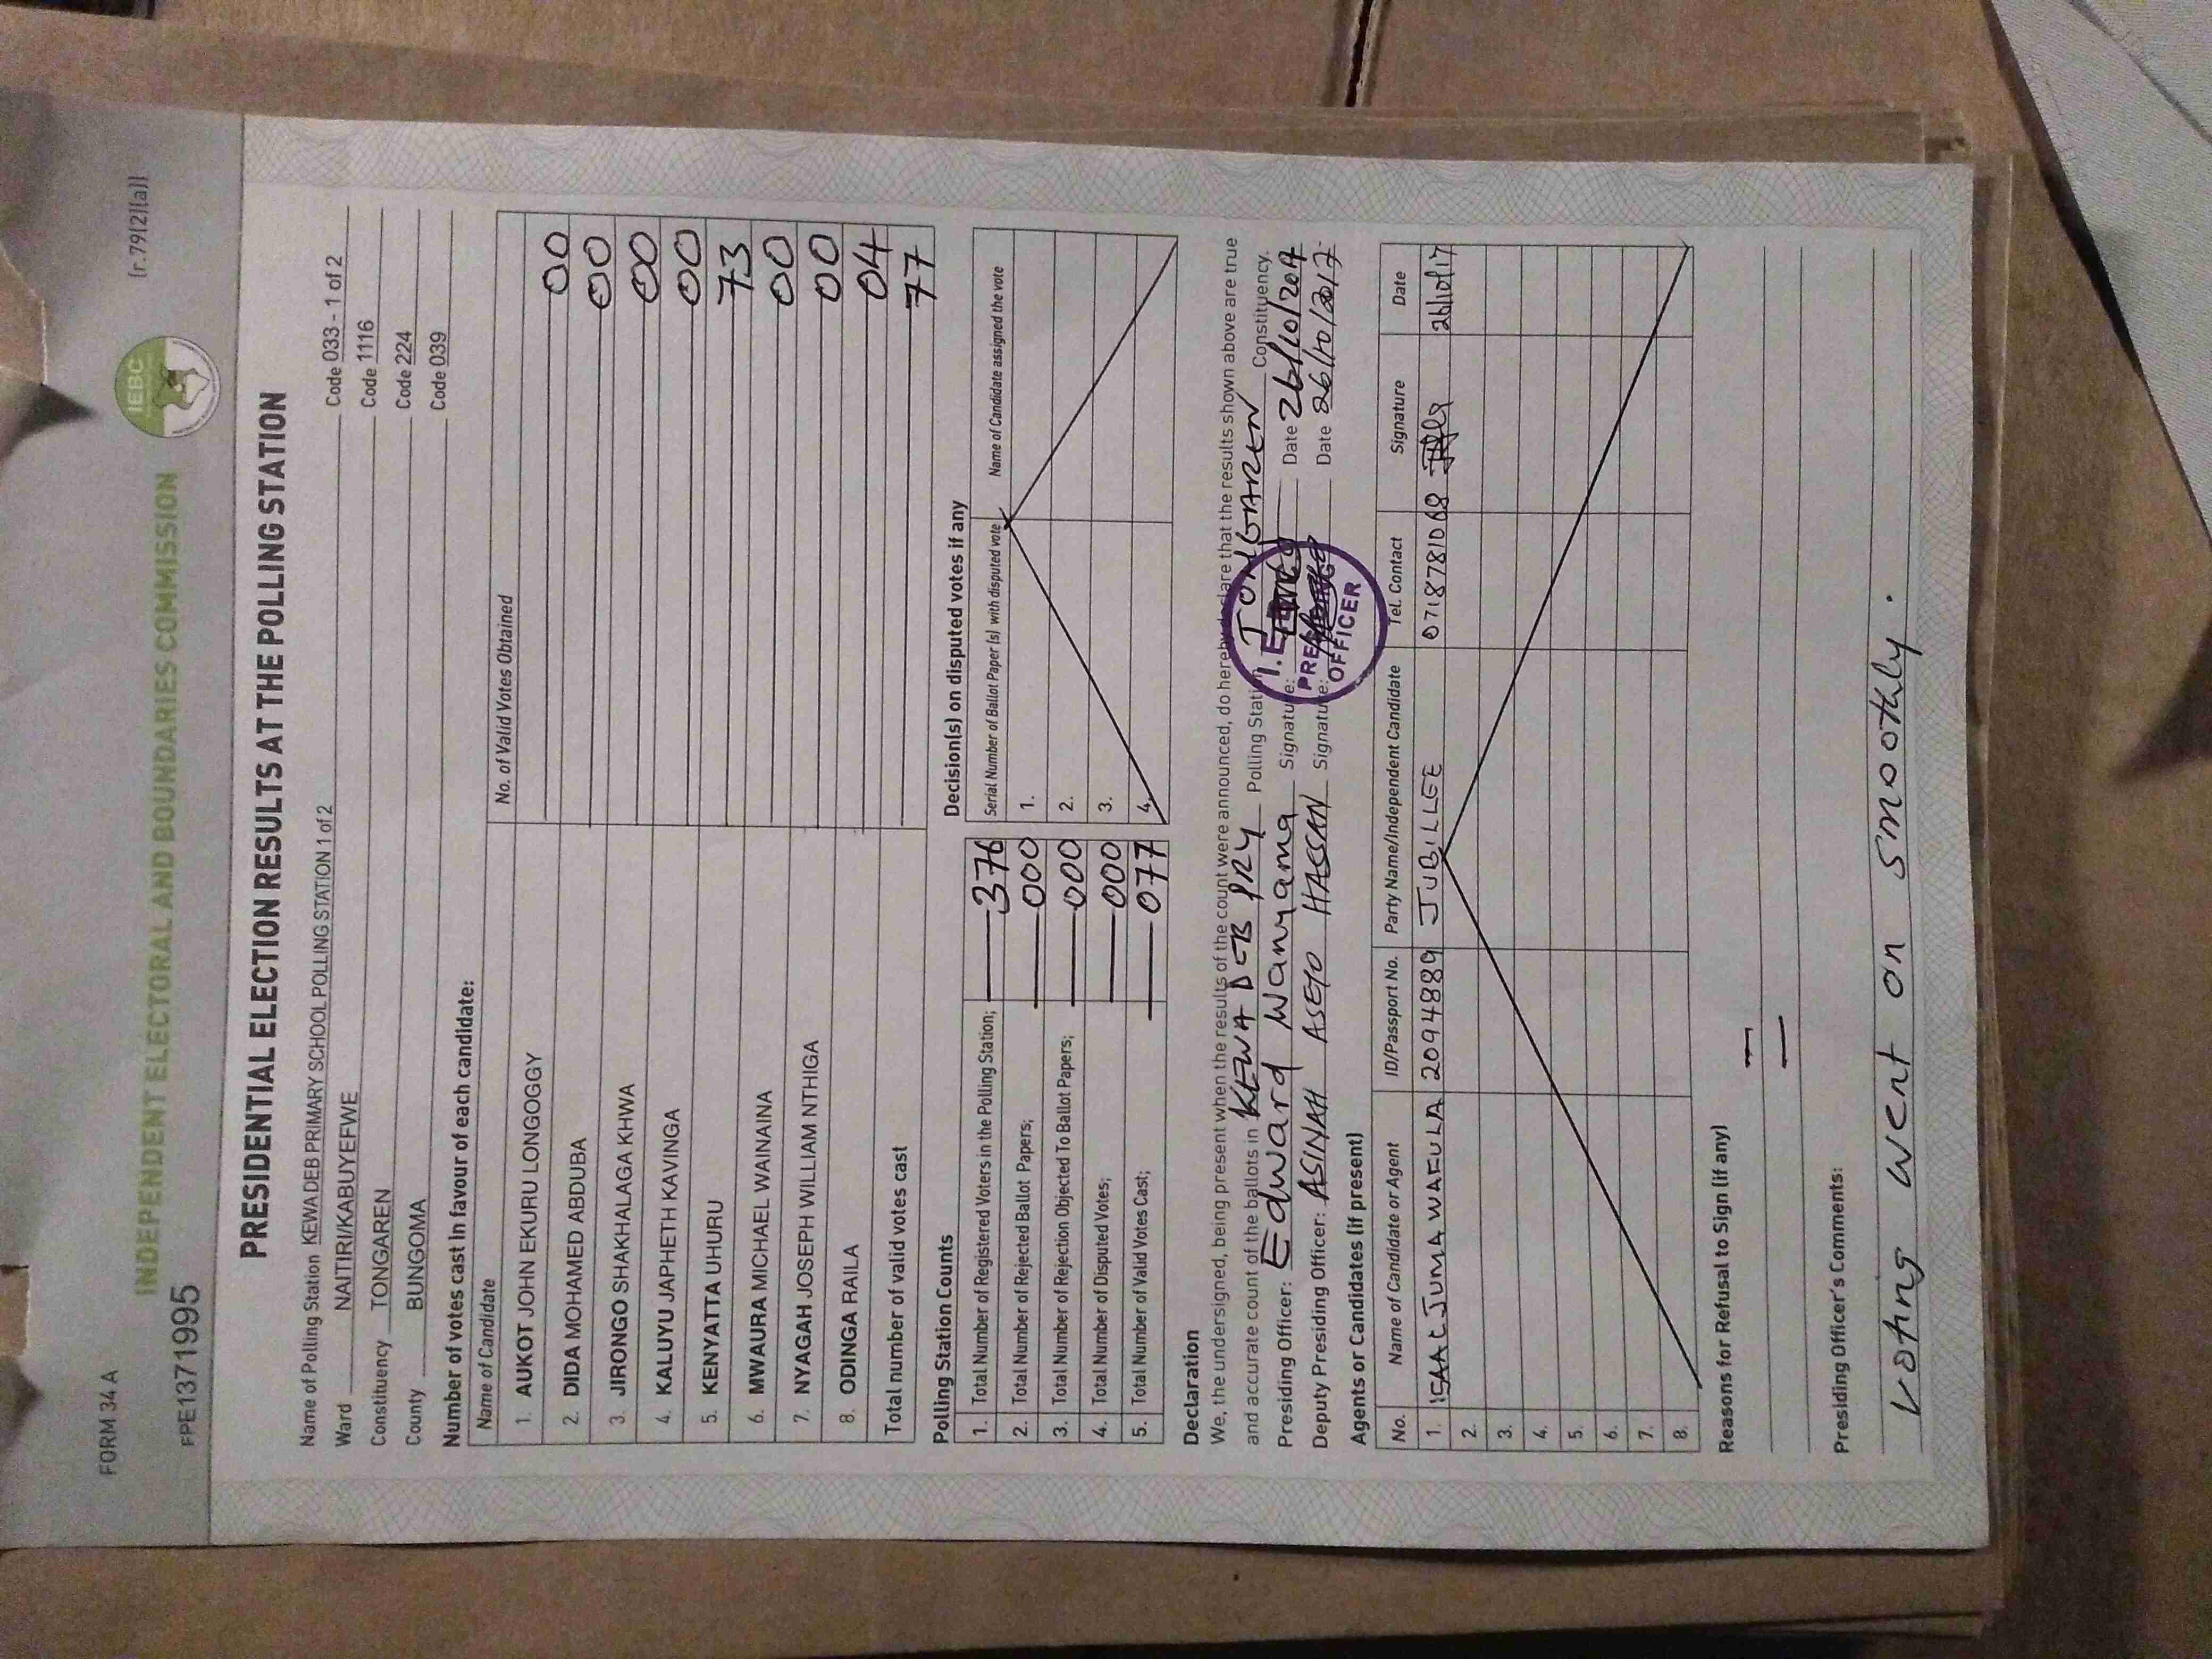 FORM 34 A
(r.79(2)(a))
IEBC
INDEPENDENT ELECTORAL AND BOUNDARIES COMMISSION
FPE1371995
PRESIDENTIAL ELECTION RESULTS AT THE POLLING STATION
Name of Polling Station KEWA DEB PRIMARY SCHOOL POLLING STATION 1 of 2 Code 033 - 1 of 2
Ward NAITIRI/KABUYEFWE Code 1116
Constituency TONGAREN Code 224
County BUNGOMA Code 039
Number of votes cast in favour of each candidate:
Name of Candidate No. of Valid Votes Obtained
1. AUKOT JOHN EKURU LONGOGGY 00
2. DIDA MOHAMED ABDUBA 00
3. JIRONGO SHAKHALAGA KHWA 00
4. KALUYU JAPHETH KAVINGA 00
5. KENYATTA UHURU 73
6. MWAURA MICHAEL WAINAINA 00
7. NYAGAH JOSEPH WILLIAM NTHIGA 00
8. ODINGA RAILA 04
Total number of valid votes cast 77
Polling Station Counts
1. Total Number of Registered Voters in the Polling Station; 376
2. Total Number of Rejected Ballot Papers; 000
3. Total Number of Rejection Objected To Ballot Papers; 000
4. Total Number of Disputed Votes; 000
5. Total Number of Valid Votes Cast; 077
Decision(s) on disputed votes if any
Serial Number of Ballot Paper (s) with disputed vote Name of Candidate assigned the vote
1.
2.
3.
4.
Declaration
We, the undersigned, being present when the results of the count were announced, do hereby declare that the results shown above are true
and accurate count of the ballots in KEWA DEB PRY Polling Station TONGAREN Constituency.
Presiding Officer: Edward Wanyama Signature: Date 26/10/2017
Deputy Presiding Officer: ASINAH ASEYO HASSAN Signature: Date 26/10/2017
OFFICER
Agents or Candidates (if present)
No. Name of Candidate or Agent ID/Passport No. Party Name/Independent Candidate Tel. Contact Signature Date
1. ISAAC JUMA WAFULA 2094889 JUBILLEE 0718781068 26/10/17
2.
3.
4.
5.
6.
7.
8.
Reasons for Refusal to Sign (if any)
Presiding Officer's Comments:
Voting went on smoothly.